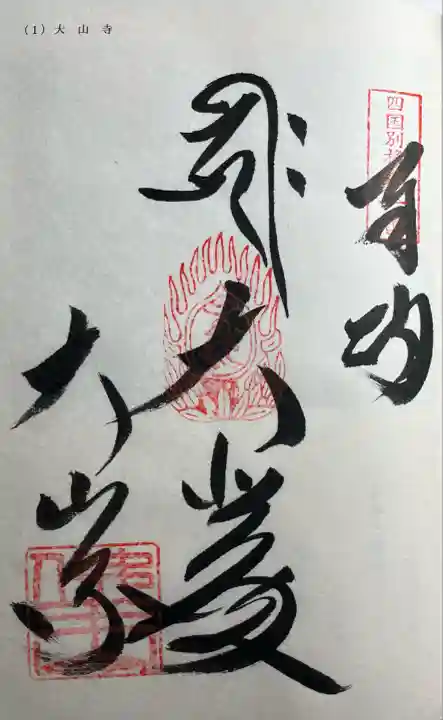 (1) 大 山 寺
四国別格
奉納
大悲殿
大山寺